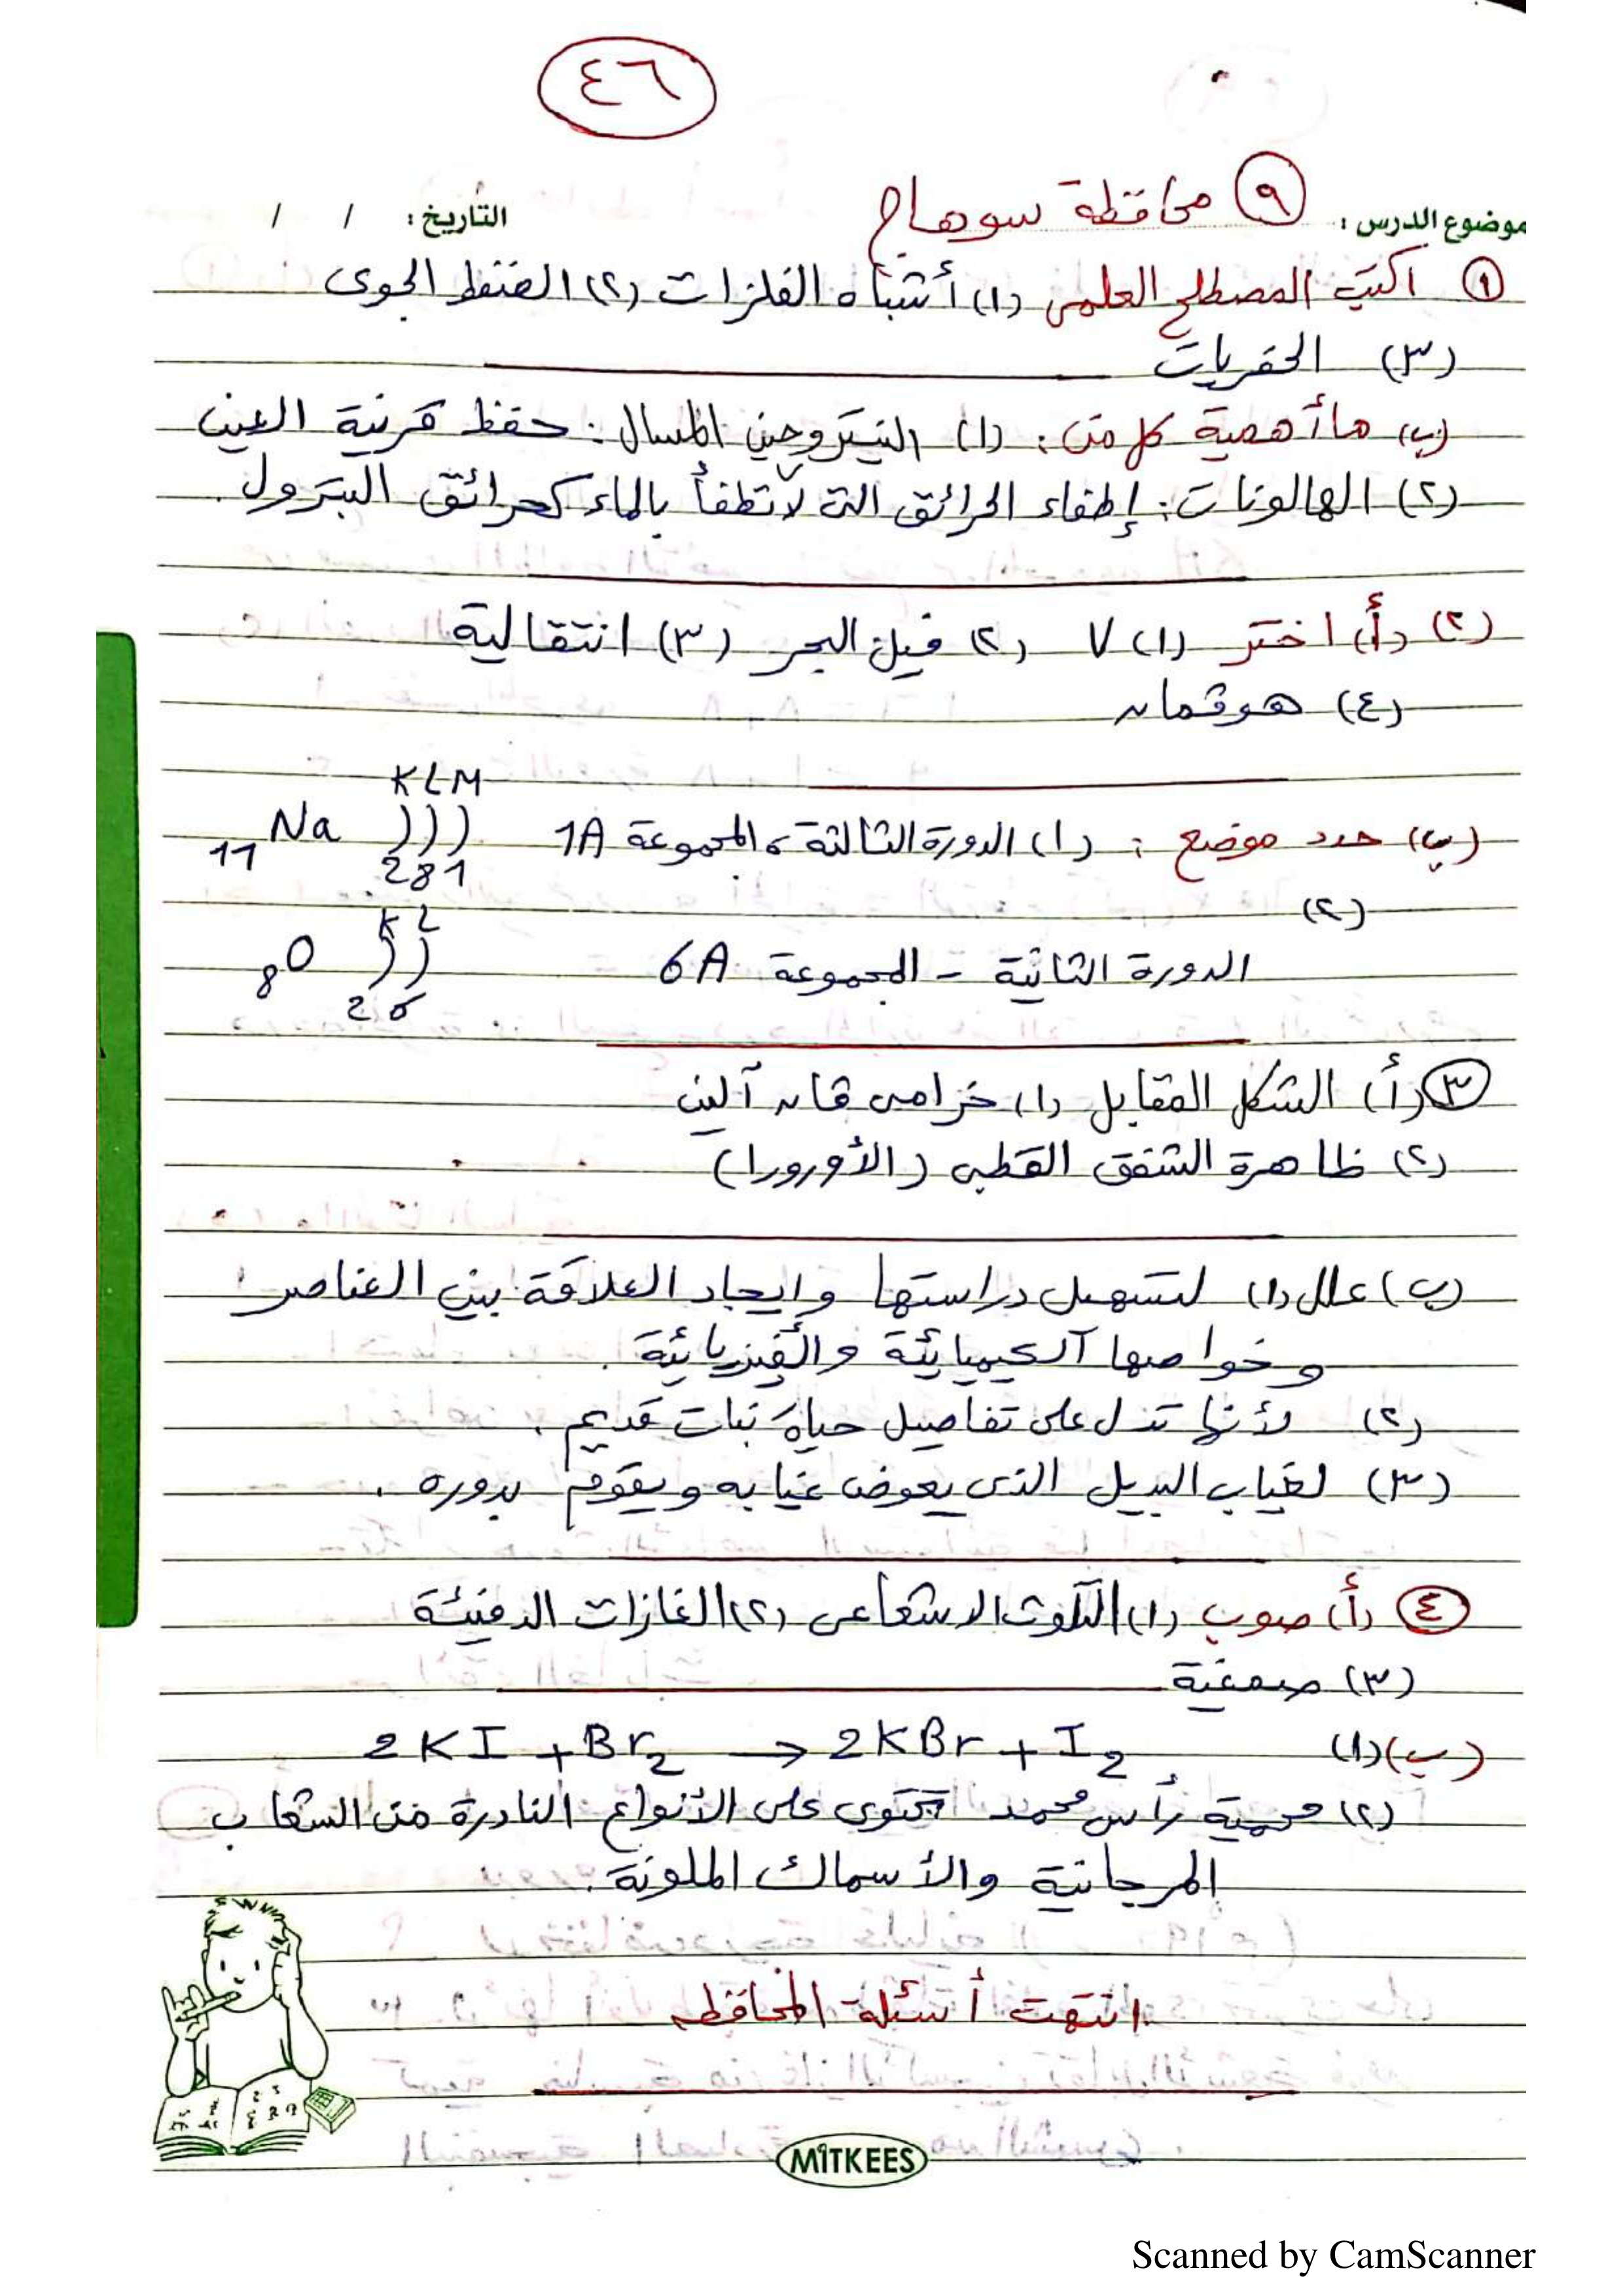 ٤٦
موضوع الدرس : ٩ محافظة سوهاج التاريخ : / /
١ اكتب المصطلح العلمى (١) أشباه الفلزات (٢) الضغط الجوى
(٣) الحفريات
(ب) ما أهمية كل من : (١) النيتروجين المسال : حفظ قرنية العين
(٢) الهالونات : إطفاء الحرائق التى لا تطفأ بالماء كحرائق البترول .
(٢) (أ) اختر (١) ٧ (٢) فيل البحر (٣) انتقالية
(٤) هوفمان
K L M
(ب) حدد موضع : (١) الدورة الثالثة ، المجموعة 1A 11Na )))
2 8 1
(٢)
K L
الدورة الثانية - المجموعة 6A 8O ))
2 6
٣ (أ) الشكل المقابل (١) حزامى فان آلين
(٢) ظاهرة الشفق القطبى (الأورورا)
(ب) علل (١) لتسهيل دراستها وإيجاد العلاقة بين العناصر
وخواصها الكيميائية والفيزيائية .
(٢) لأنها تدل على تفاصيل حياة نبات قديم .
(٣) لغياب البديل الذى يعوض غيابه ويقوم بدوره .
٤ (أ) صوب (١) التلوث الاشعاعى (٢) الغازات الدفيئة
(٣) صمغية
(ب) (١) 2KI + Br2 → 2KBr + I2
(٢) محمية رأس محمد تحتوى على الأنواع النادرة من الشعاب
المرجانية والأسماك الملونة .
انتهت أسئلة المحافظه
MITKEES
Scanned by CamScanner